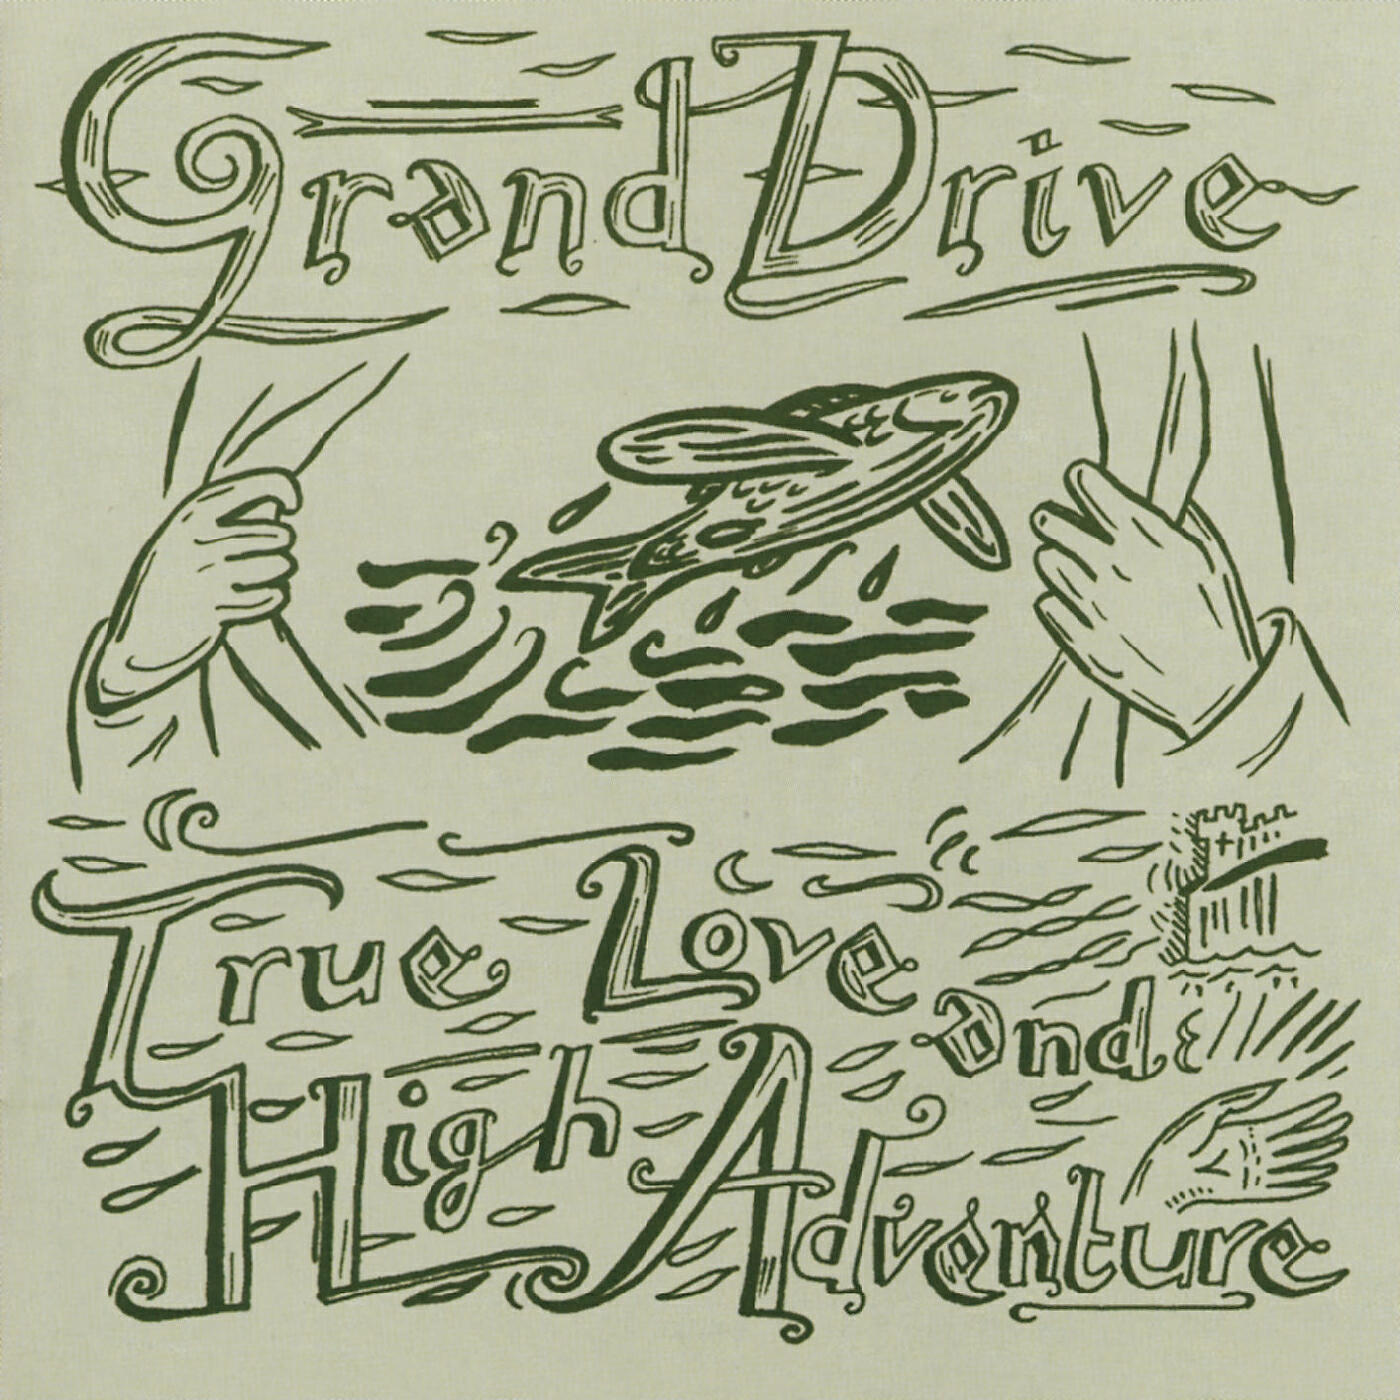 Grand Drive
True Love
and
High Adventure